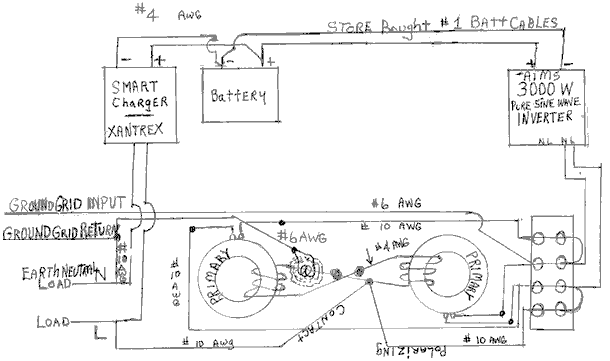 #4 AWG
STORE Bought #1 BATT CABLES
- +
SMART
Charger
XANTREX
- +
BATTERY
+ -
AIMS
3000 W
PURE SINE WAVE
INVERTER
N L N L
GROUND GRID INPUT
#6 AWG
GROUND GRID RETURN
# 10 AWG
#6 AWG
#4 AWG
PRIMARY
PRIMARY
EARTH NEUTRAL N
LOAD
#10 AWG
LOAD
L
CONTACT
# 10 AWG
Polarizing
# 10 AWG